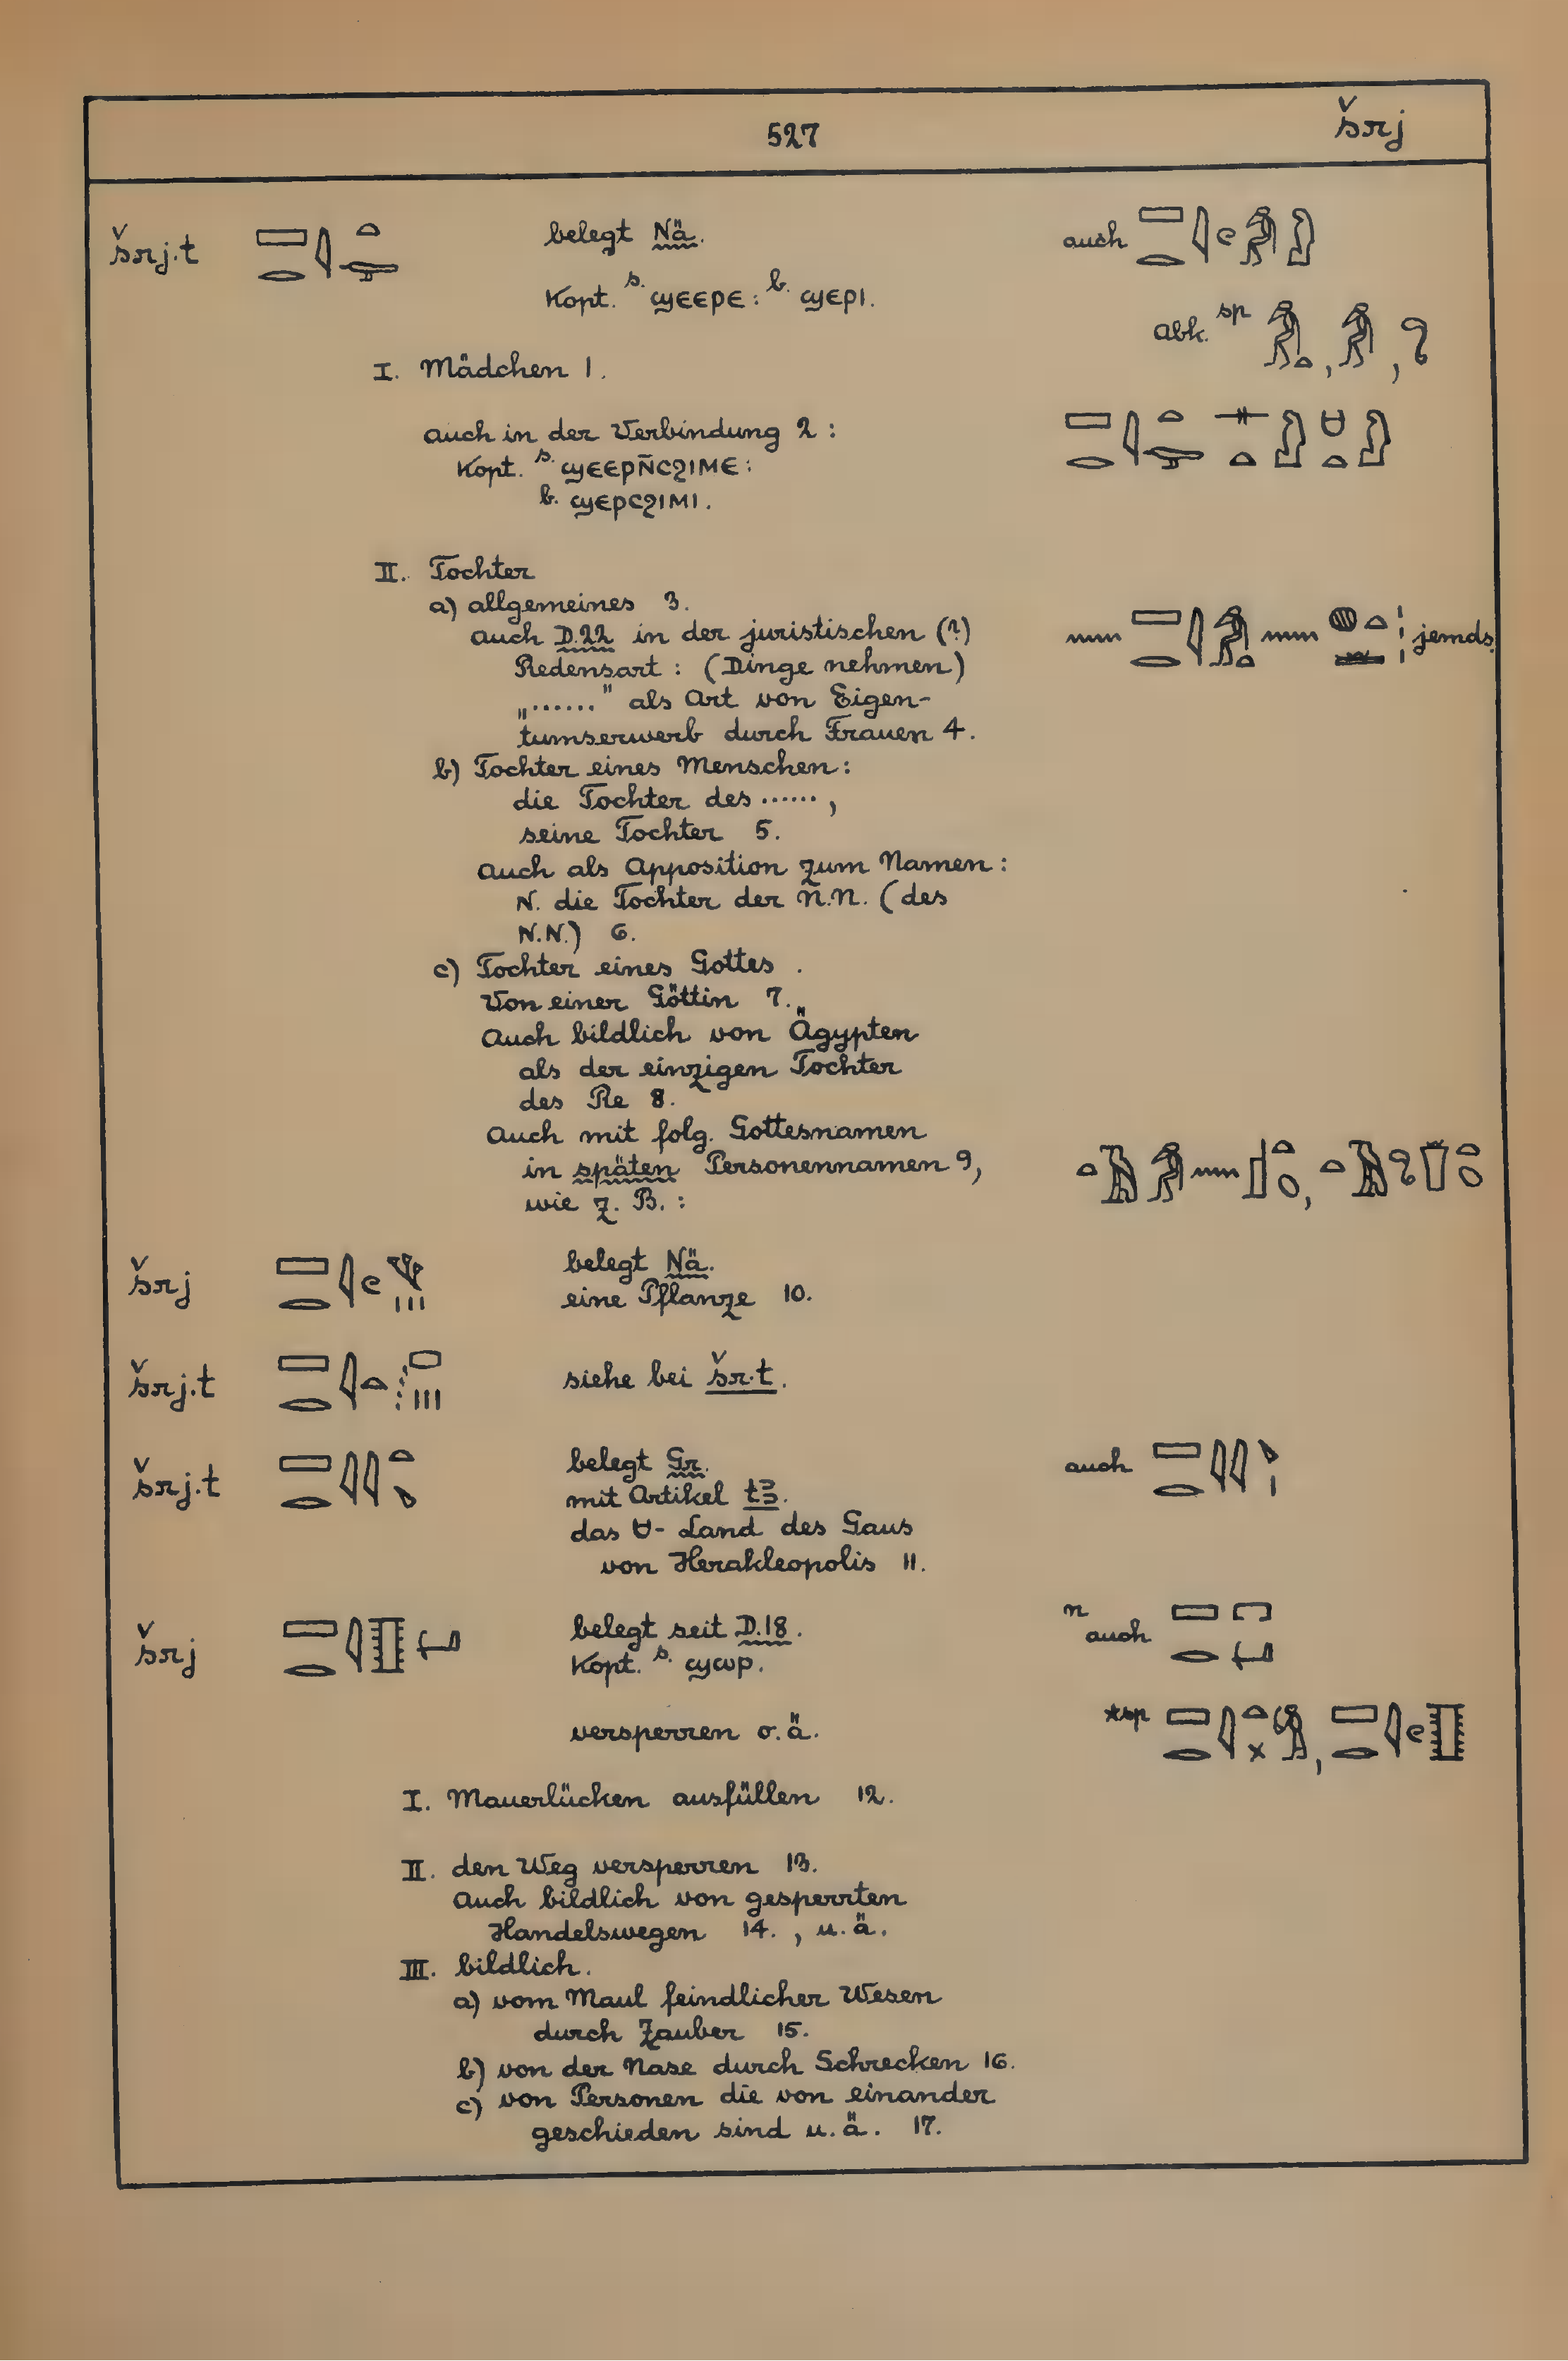 527 šrj
šrj.t belegt Nä. auch
Kopt. s. ϣⲉⲉⲣⲉ : b. ϣⲉⲣⲓ.
abk. sp
I. Mädchen 1.
auch in der Verbindung 2 :
Kopt. s. ϣⲉⲉⲣⲛ̄ⲥϩⲓⲙⲉ :
b. ϣⲉⲣⲥϩⲓⲙⲓ.
II. Tochter
a) allgemeines 3.
auch D.22 in der juristischen (?) jemds.
Redensart : (Dinge nehmen)
„......" als Art von Eigen-
tumserwerb durch Frauen 4.
b) Tochter eines Menschen :
die Tochter des ......,
seine Tochter 5.
Auch als Apposition zum Namen :
N. die Tochter der N.N. (des
N.N.) 6.
c) Tochter eines Gottes .
Von einer Göttin 7.
Auch bildlich von Ägypten
als der einzigen Tochter
des Re 8.
Auch mit folg. Gottesnamen
in späten Personennamen 9,
wie z. B. :
šrj belegt Nä.
eine Pflanze 10.
šrj.t siehe bei šr.t.
šrj.t belegt Gr. auch
mit Artikel tꜣ.
das - Land des Gaus
von Herakleopolis 11.
šrj belegt seit D.18. n auch
Kopt. s. ϣⲱⲣ.
versperren o. ä. *sp
I. Mauerlücken ausfüllen 12.
II. den Weg versperren 13.
Auch bildlich von gesperrten
Handelswegen 14. , u. ä.
III. bildlich.
a) vom Maul feindlicher Wesen
durch Zauber 15.
b) von der Nase durch Schrecken 16.
c) von Personen die von einander
geschieden sind u. ä. 17.